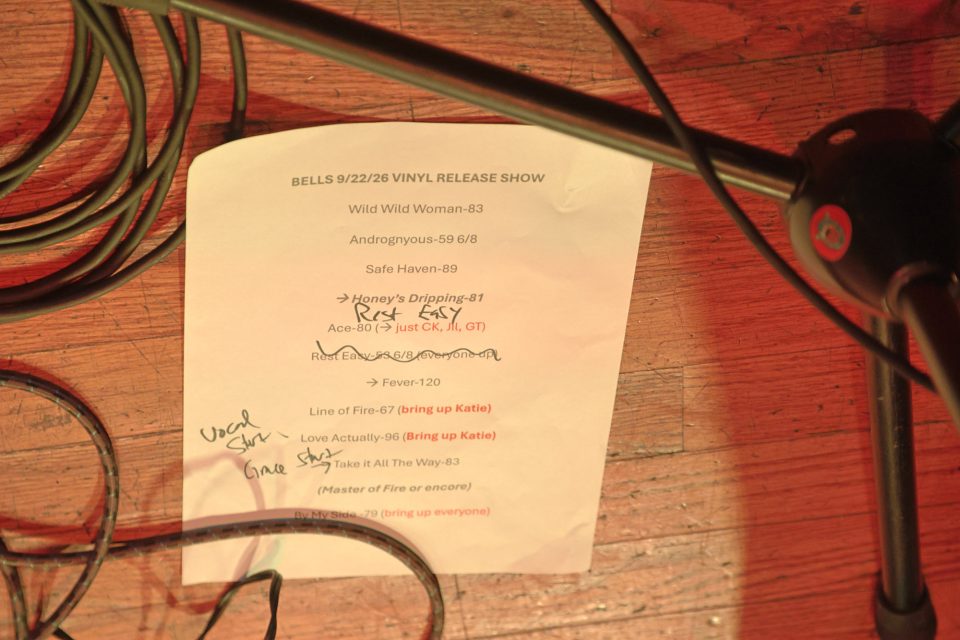 BELLS 9/22/26 VINYL RELEASE SHOW
Wild Wild Woman-83
Andrognyous-59 6/8
Safe Haven-89
→ Honey's Dripping-81
Rest Easy
Ace-80 (→ just CK, Jil, GT)
Rest Easy-53 6/8 (everyone up)
→ Fever-120
Line of Fire-67 (bring up Katie)
Vocal Start
Love Actually-96 (Bring up Katie)
Grace Start
→ Take it All The Way-83
(Master of Fire or encore)
By My Side -79 (bring up everyone)